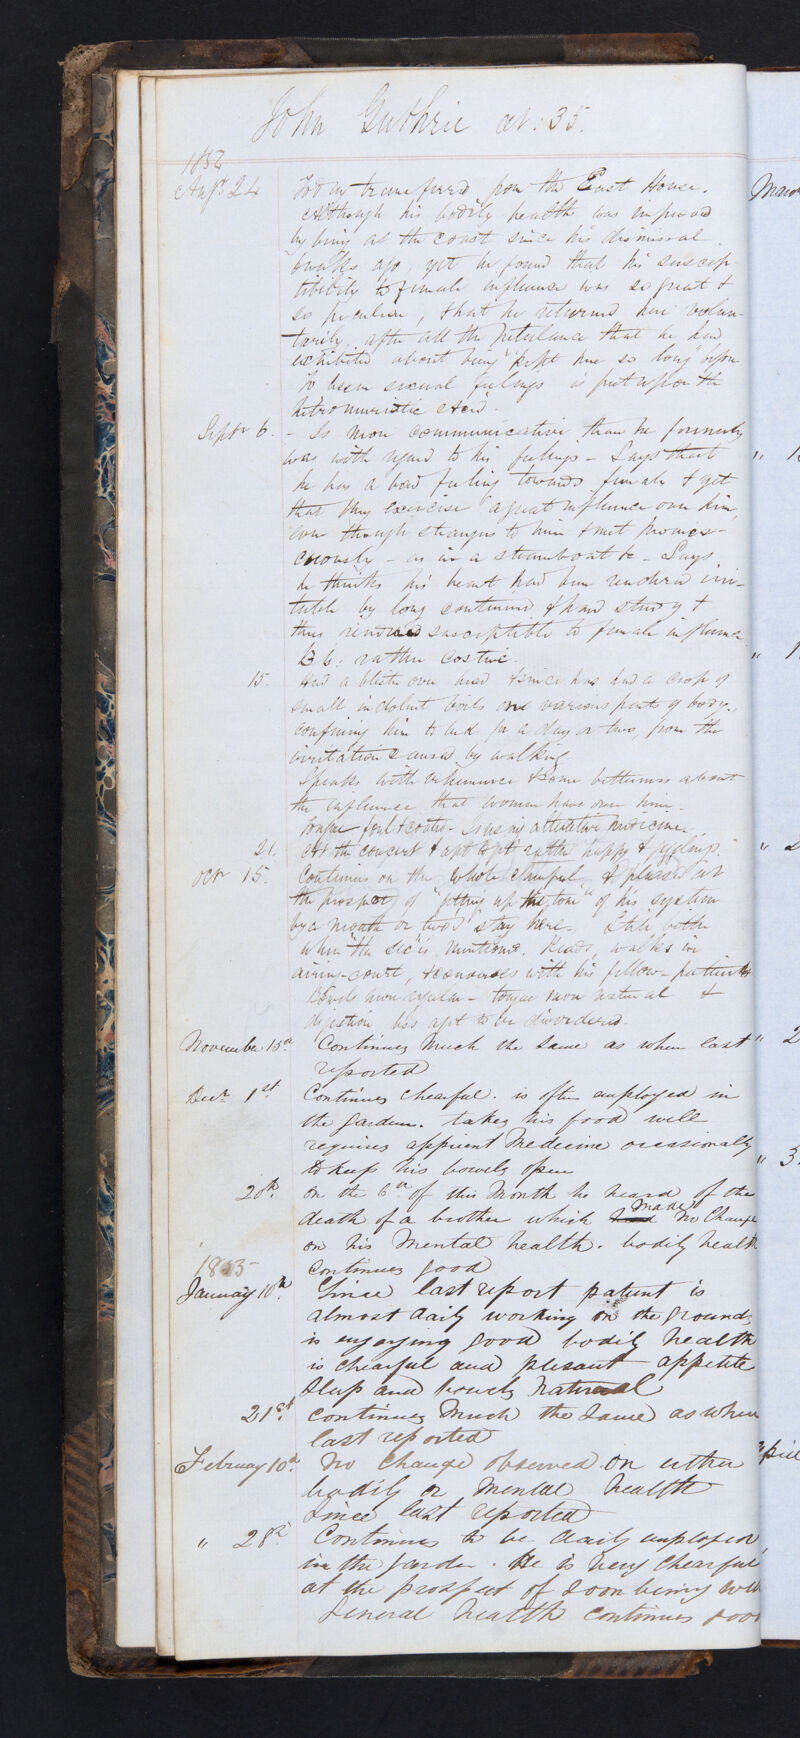 John Guthrie æt: 35.
1852
Augt 24 Today transferred from the East House.
Although his bodily health was improved
by being at the coast since his dismissal
weeks ago, yet he found that his suscep-
tibility to female influence was so great &
so peculiar, that he returned here volun-
tarily, after all the petulance that he had
exhibited about being "kept here so long" before
To lessen sexual feelings is put upon the
Nitromuriatic Acid.
Septr 6. - Is more communicative than he formerly
was with regard to his feelings - Says that
he has a bad feeling towards females & yet
that they exercise a great influence over him,
even though strangers to him & met promis-
cuously - as in a steamboat &c - Says
he thinks his heart had been rendered irri-
table by long continued & hard study &
thus rendered susceptible to female influence.
B b: rather costive.
15. Had a blister over head & since has had a crop of
small indolent boils over various parts of body,
confining him to bed for a day or two, from the
irritation caused by walking.
Speaks with vehemence & some bitterness about
the influence that women have over him.
Tongue foul & coated - Is using alterative medicine.
21. At the concert & apt to get rather happy & "giddy".
Octr 15. Continues on the whole cheerful & pleased at
the prospect of "getting up the tone" of his system
by a month or two's stay here. Still bitter
when "the sec" is mentioned. Reads, walks in
airing-court, & converses with his fellow-patients
Bowels more regular - tongue more natural &
digestion less apt to be disordered.
November 15th Continues Much the same as when last
reported
Decr 1st Continues chearful. is often employed in
the garden. takes his food well
requires apprient Medicine occasionally
to keep his bowels open
20th. On the 6th of this Month he heard of the
death of a brother which had made No Change
on his Mental health. bodily health
continues good
1853
January 10th. Since last report patient is
almost daily working on the grounds
is enjoying good bodily health
is chearful and plesant appetite
Sleep and bowels Natural
21st. Continues Much the same as when
last reported
February 10th. No change observed on either
bodily or Mental health
since last reported
" 28th Continues to be daily employed
in the garden. He is very chearful
at the prospect of soon being well
General health continues good